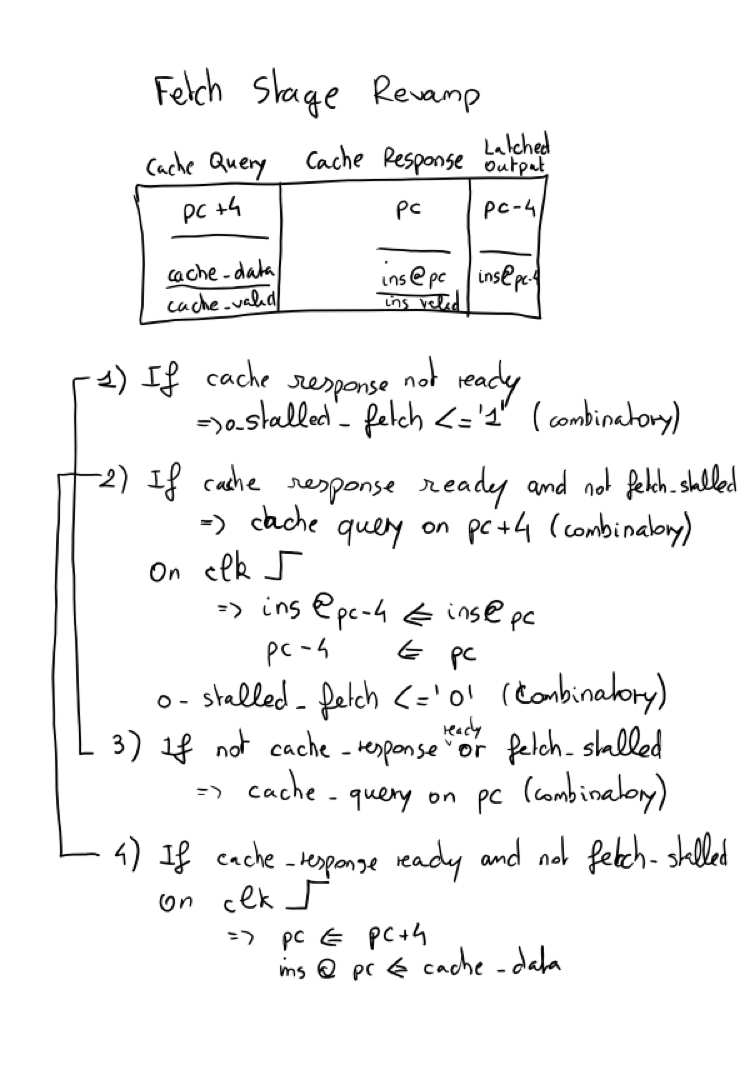 Fetch Stage Revamp
Cache Query Cache Response Latched Output
pc+4 pc pc-4
cache_data ins@pc ins@pc-4
cache_valid ins valid
1) If cache response not ready
=> o_stalled_fetch <= '1' (combinatory)
2) If cache response ready and not fetch_stalled
=> cache query on pc+4 (combinatory)
On clk
=> ins @pc-4 <= ins@pc
pc-4 <= pc
o-stalled_fetch <= '0' (combinatory)
3) If not cache_response ready or fetch_stalled
=> cache_query on pc (combinatory)
4) If cache_response ready and not fetch_stalled
on clk
=> pc <= pc+4
ins @ pc <= cache_data